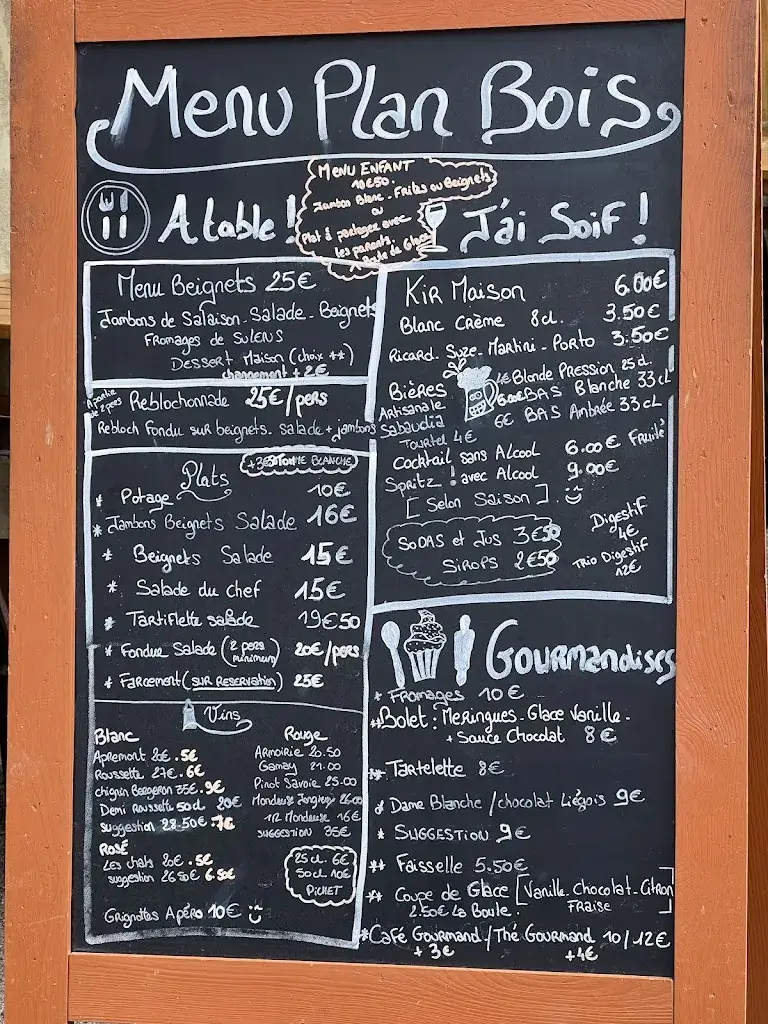 Menu Plan Bois
MENU ENFANT
10€50.
Jambon Blanc - Frites ou Beignets
ou
Plat à partager avec
les parents.
A table !
J'ai Soif !
Menu Beignets 25€
Jambons de Salaison - Salade - Beignets
Fromages de SULENS
Dessert Maison (choix **)
changement + 2€
A partie de 2 pers
Reblochonnade 25€/pers
Rebloch Fondu sur beignets - Salade + jambons
Plats
* Potage 10€
* Jambons Beignets Salade 16€
* Beignets Salade 15€
* Salade du chef 15€
* Tartiflette salade 19€50
* Fondue Salade (2 pers minimum) 20€/pers
* Farcement (SUR RESERVATION) 25€
Vins
Blanc
Apremont 20€ . 5€
Roussette 27€ . 6€
chignin Bergeron 35€ . 9€
Demi Roussette 50cl 20€
suggestion 28.50€ . 7€
Rosé
Les chats 20€ . 5€
suggestion 26 50€ 6.50€
Grignottes Apéro 10€
Rouge
Armoirie 20.50
Gamay 21.00
Pinot Savoie 25.00
Mondeuse 26.00
1/2 Mondeuse 16€
SUGGESTION 35€
25 cl. 6€
50 cl 10€
PICHET
Kir Maison 6.00€
Blanc Crème 8cl. 3.50€
Ricard - Suze - Martini - Porto 3.50€
Bières
Artisanale
Sabaudia
4€ Blonde Pression 25 cl
BAS Blanche 33 cl
6€ BAS Ambrée 33 cL
Tourtel 4€
Cocktail sans Alcool 6.00€ Fruité
Spritz ! avec Alcool 9.00€
[Selon Saison]
SODAS et Jus 3€50
SiROPS 2€50
Digestif
4€
Trio Digestif
12€
Gourmandises
* Fromages 10€
** Bolet : Meringues - Glace Vanille -
+ Sauce Chocolat 8€
** Tartelette 8€
Dame Blanche / chocolat Liégois 9€
* SUGGESTION 9€
** Faisselle 5.50€
** Coupe de Glace [Vanille - Chocolat - Citron
Fraise]
2.50€ La Boule.
* Café Gourmand / Thé Gourmand 10/12€
+ 3€ +4€